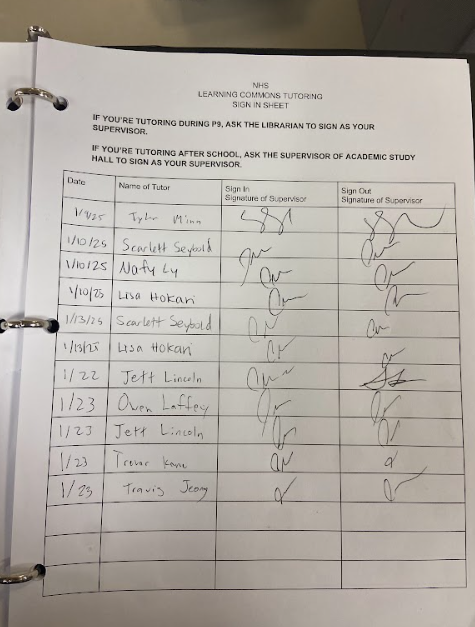 NHS
LEARNING COMMONS TUTORING
SIGN IN SHEET
IF YOU'RE TUTORING DURING P9, ASK THE LIBRARIAN TO SIGN AS YOUR
SUPERVISOR.
IF YOU'RE TUTORING AFTER SCHOOL, ASK THE SUPERVISOR OF ACADEMIC STUDY
HALL TO SIGN AS YOUR SUPERVISOR.
Date Name of Tutor Sign In Sign Out
Signature of Supervisor Signature of Supervisor
Tyler Minn
1/10/25 Scarlett Seybold
1/10/25 Nafy Ly
1/10/25 Lisa Hokari
1/13/25 Scarlett Seybold
1/13/25 Lisa Hokari
1/22 Jett Lincoln
1/23 Owen Laffey
1/23 Jett Lincoln
1/23 Trevor Kane
1/23 Travis Jeong